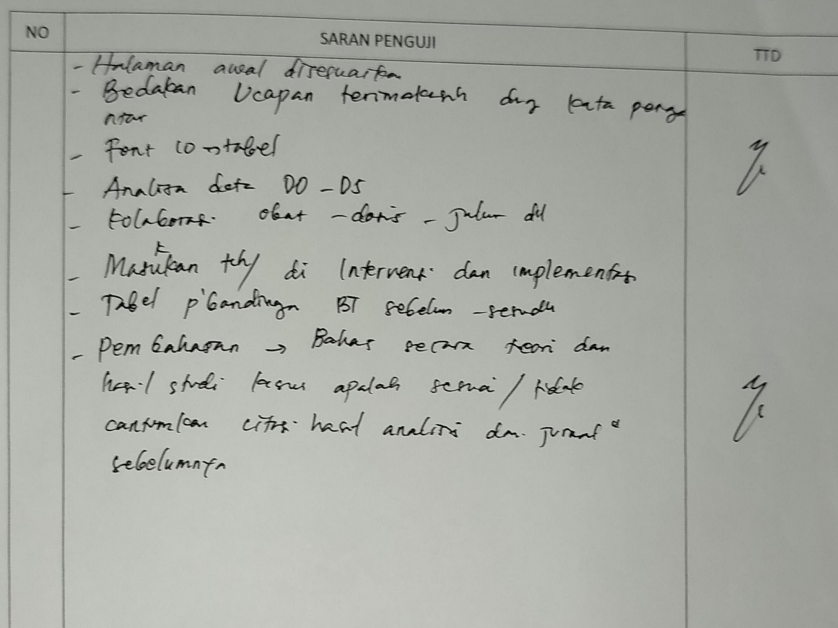 NO SARAN PENGUJI TTD
- Halaman awal disesuaika
- Bedakan Ucapan terimakasih dng kata penga
ntar
- Font 10 → tabel
- Analisa data DO - DS
- Kolaborasi obat - dosis - jalur dll
- Masukkan di Intervensi dan implementasi
- Tabel p'bandinga sebelum - sesudh
- Pembahasan → Bahas secara teori dan
hasil studi kasus apakah sesuai / tidak
cantumkan citasi hasil analisis dan jurnal"
sebelumnya